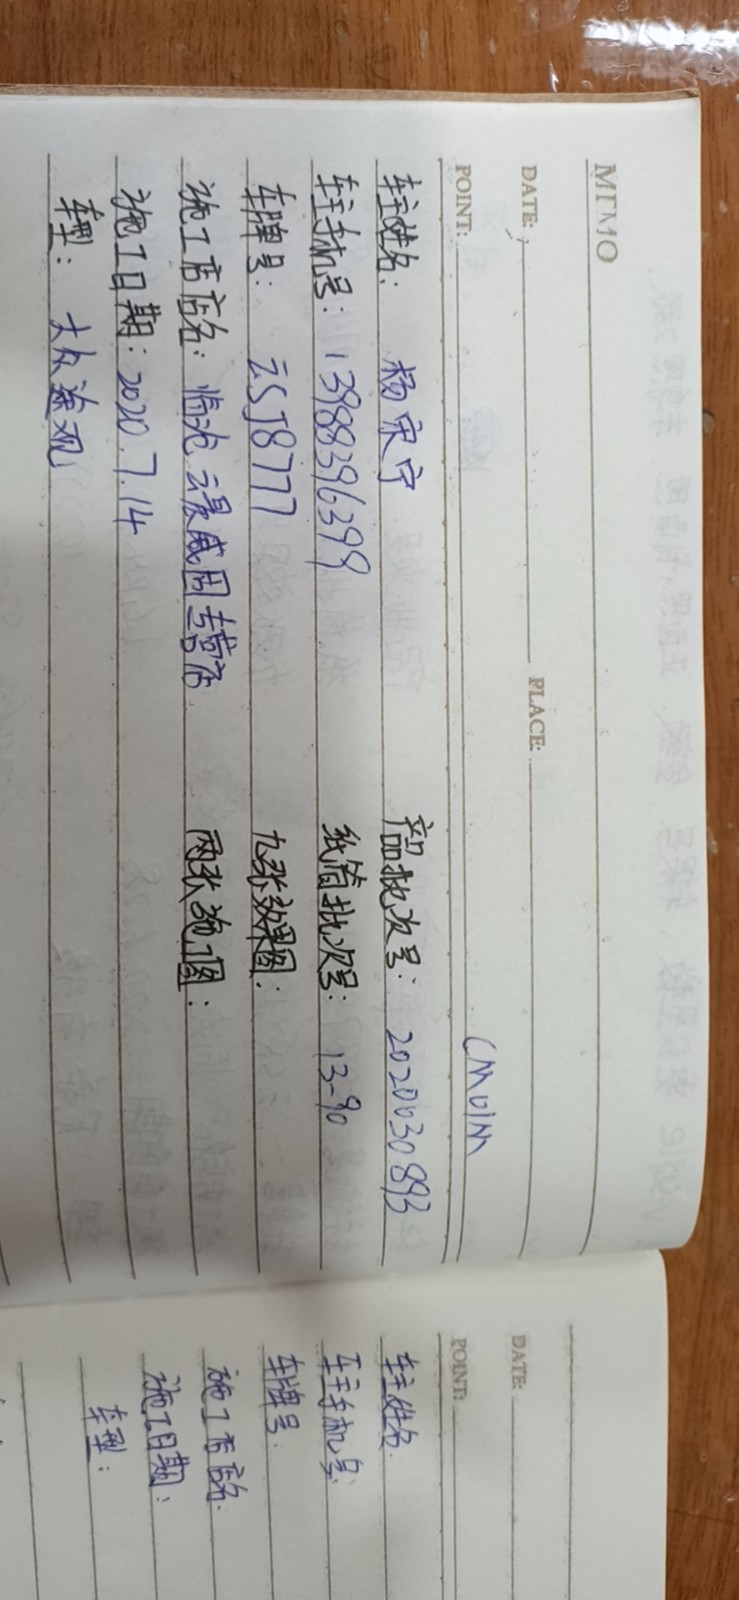 MEMO
DATE: PLACE:
POINT:
CM01M
车主姓名: 杨宋宁 产品批次号: 2020030893
车主手机号: 13988396399 纸筒批次号: 13-90
车牌号: 云SJ8777 九张效果图:
施工店店名: 临沧云晟威固专营店 两张施工图:
施工日期: 2020.7.14
车型: 大众途观
DATE:
POINT:
车主姓名:
车主手机号:
车牌号:
施工店店名:
施工日期:
车型: